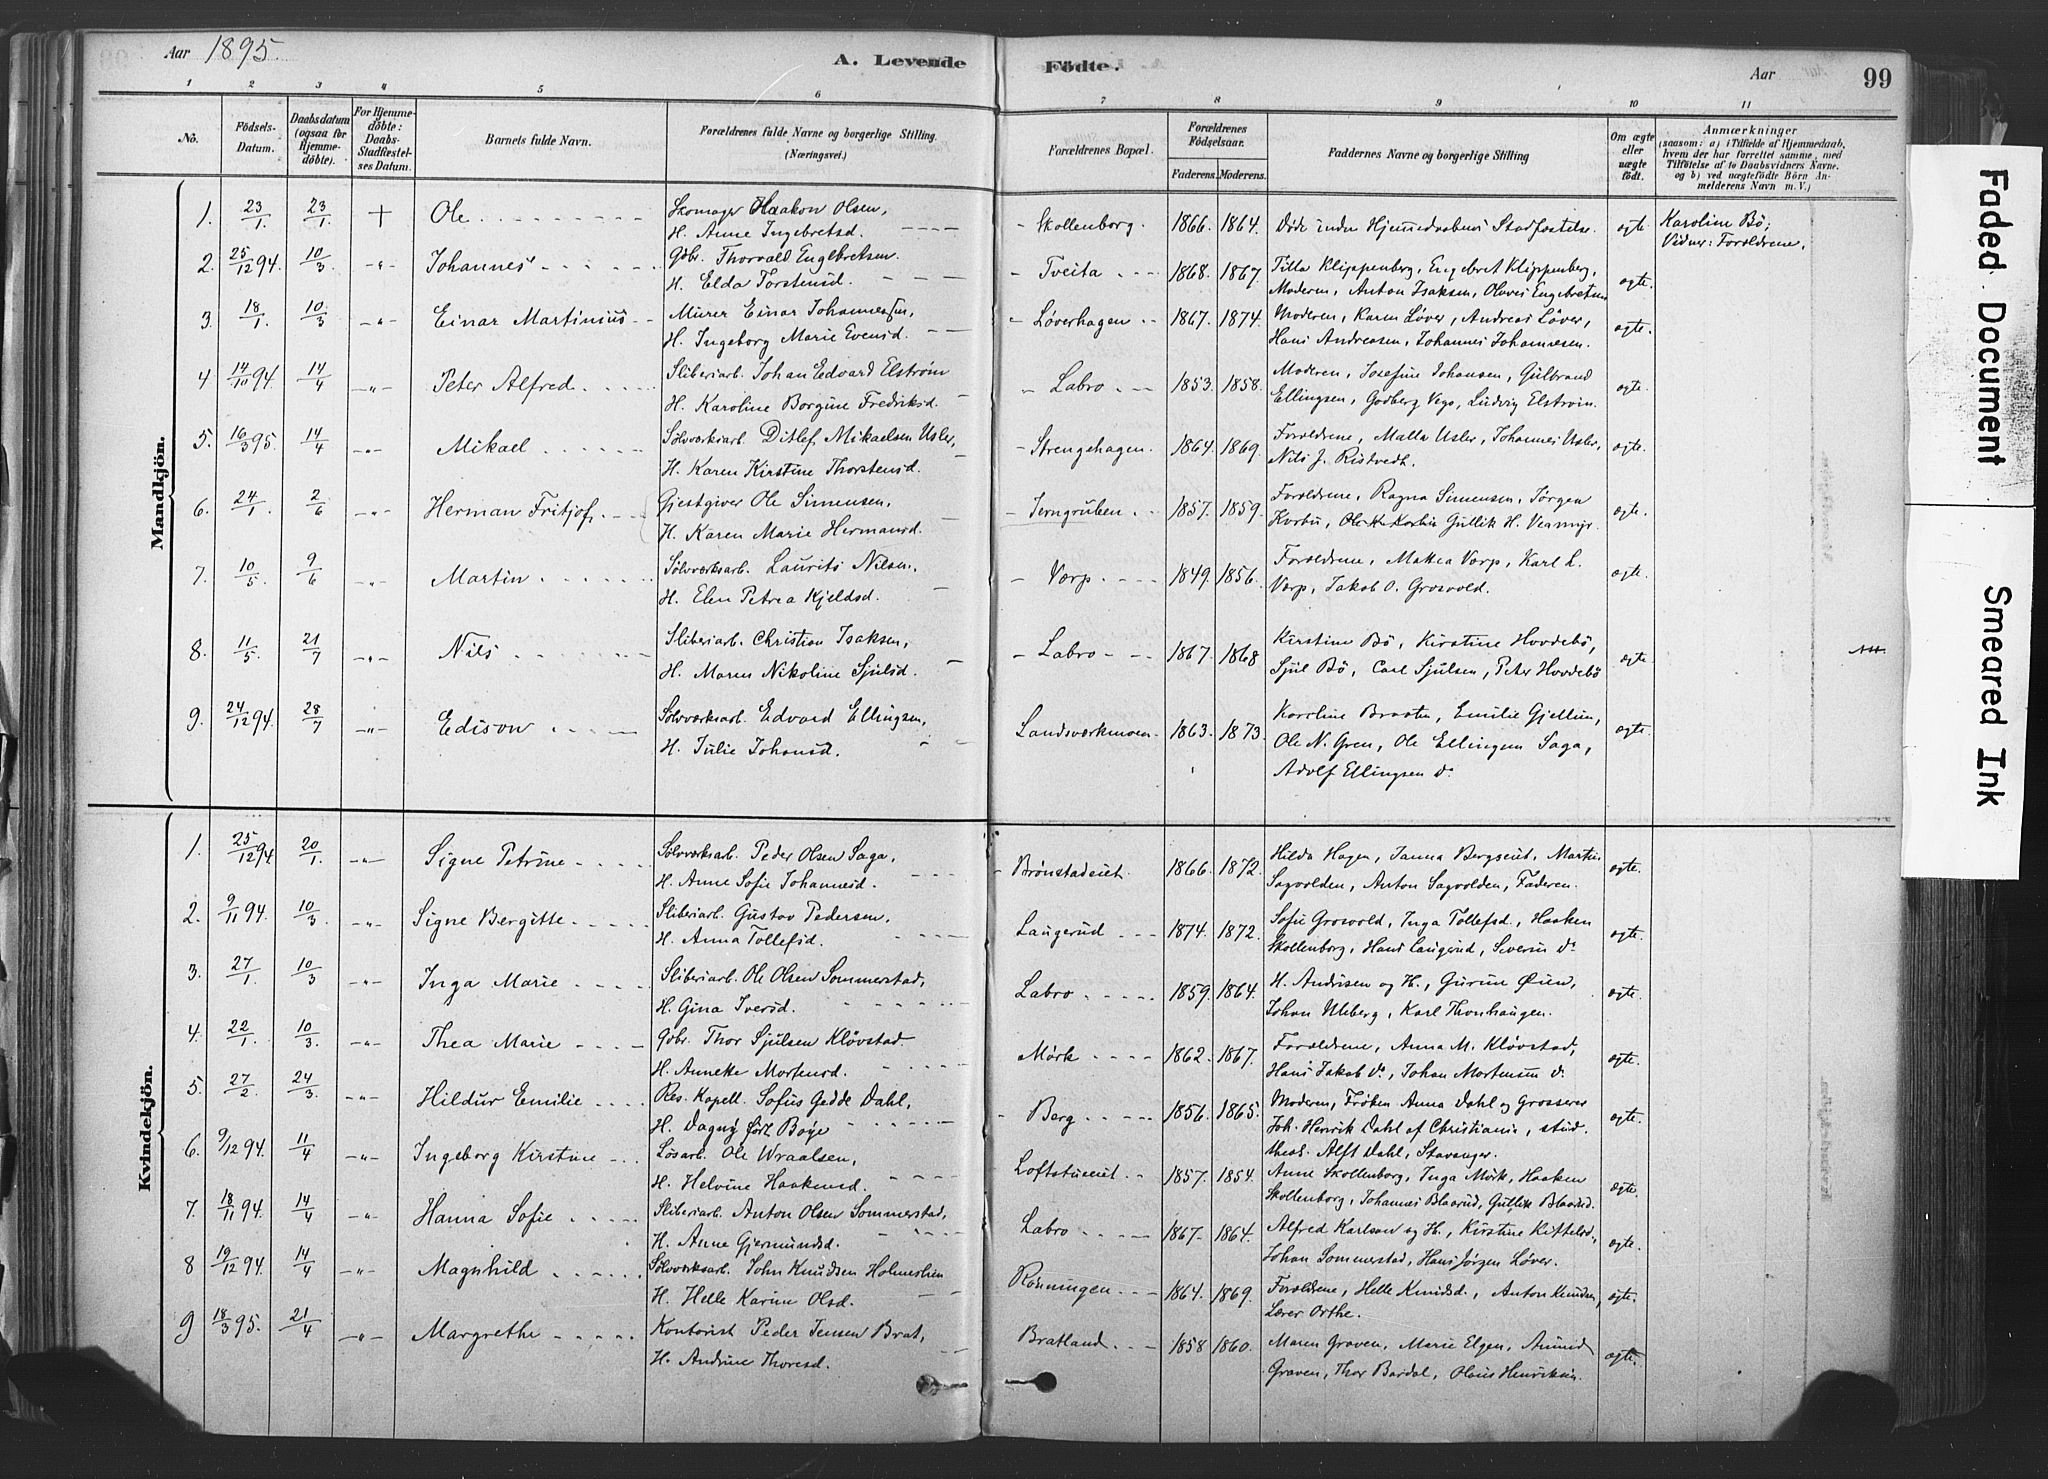 Aar 1895.
A. Levende
Födte.
Aar
99
1 2 3 4 5 6 7 8 9 10 11
No.
Födsels-
Datum.
Daabsdatum
(ogsaa for
Hjemme-
döbte).
For Hjemme-
döbte:
Daabs-
Stadfæstel-
ses Datum.
Barnets fulde Navn.
Forældrenes fulde Navne og borgerlige Stilling.
(Næringsvei.)
Forældrenes Bopæl.
Forældrenes
Födselsaar.
Faderens. Moderens.
Faddernes Navne og borgerlige Stilling
Om ægte
eller
uægte
födt.
Anmærkninger
(saasom: a) i Tilfælde af Hjemmedaab,
hvem der har forrettet samme, med
Tilföielse af to Daabsvidners Navne.
og b) ved uægtefödte Börn An-
melderens Navn m. V.)
Mandkjön.
1. 23/1 23/1 + Ole
Skomager Haakon Olsen,
H. Anne Ingebretsd.
Skollenborg. 1866. 1864. Døde inden Hjemmedaabens Stadfæstelse. ægte
Karoline Bö;
Vidner: Forældrene.
2. 25/12 94. 10/3 -"- Johannes
Gbr. Thorvald Engebretsen.
H. Elda Torstensd.
Tveita 1868. 1867. Tilla Klippenberg, Engebret Klippenberg,
Moderen, Anton Isaksen, Olaves Engebretsen ægte.
3. 18/1 10/3 -"- Einar Martinius
Murer Einar Johannessen,
H. Ingeborg Marie Evensd.
Løverhagen 1867. 1874. Moderen, Karen Løver, Andreas Løver,
Hans Andreasen, Johannes Johannesen. ægte.
4 14/10 94. 14/4 -"- Peter Alfred
Sliberiarb. Johan Edvard Elstrøm
H. Karoline Borgine Fredriksd.
Labro 1853. 1858. Moderen, Josefine Johansen, Gulbrand
Ellingsen, Godberg Vego, Ludvig Elstrøm. ægte.
5. 16/3 95. 14/4 -"- Mikael
Sølvværksarb. Ditlef Mikaelsen Usler,
H. Karen Kirstine Thorstensd.
Strengehagen. 1864. 1869. Forældrene, Malla Usler, Johannes Usler,
Nils J. Ristvedt. ægte.
6. 24/1 2/6 -"- Herman Fritjof
Gjestgiver Ole Simensen,
H. Karen Marie Hermansd.
Jerngruben 1857. 1859. Forældrene, Ragna Simensen, Jørgen
Korbu, Ole K. Korbu Gullik H. ægte.
7. 10/5 9/6 -"- Martin
Sølvværksarb. Laurits Nilsen,
H. Elen Petrea Kjeldsd.
Vorp 1849. 1856. Forældrene, Mathea Vorp, Karl L.
Vorp, Jakob O. Grosvold. ægte.
8. 11/5 21/7 -"- Nils
Sliberiarb. Christian Isaksen,
H. Maren Nikoline Sjulsd.
Labro 1867. 1868 Kirstine Bö, Kirstine Hovdebö,
Sjul Bö, Carl Sjulsen, Peter Hovdebö ægte.
9. 24/12 94. 28/7 -"- Edison
Sølvværksarb. Edvard Ellingsen,
H. Julie Johansd.
Landsværkmoen 1863. 1873. Karoline Braaten, Emilie Gjellum,
Ole N. Gren, Ole Ellingsen Saga,
Adolf Ellingsen do ægte.
Kvindekjön.
1. 25/12 94. 20/1 -"- Signe Petrine
Sølvværksarb. Peder Olsen Saga,
H. Anne Sofie Johannesd.
Brønstadeiet. 1866. 1872. Hilda Hagen, Janna Bergseiet, Martin
Sagvolden, Anton Sagvolden, Faderen. ægte.
2. 9/11 94. 10/3 -"- Signe Bergitte
Sliberiarb. Gustav Pedersen,
H. Anna Tollefsd.
Laugerud 1874. 1872. Sofie Grosvold, Inga Tollefsd., Haaken
Skollenborg, Hans Laugerud, Severin do ægte.
3. 27/1 10/3 -"- Inga Marie
Sliberiarb. Ole Olsen Sommerstad,
H. Gina Iversd.
Labro 1859. 1864. H. Andersen og H., Gurine Øien,
Johan Uleberg, Karl Thonhaugen. ægte.
4. 22/1 10/3. -"- Thea Marie
Gbr. Thor Sjulsen Kløvstad.
H. Annette Mortensd.
Mørk 1862. 1867. Forældrene, Anna M. Kløvstad,
Hans Jakob do, Johan Mortensen do. ægte.
5. 27/2 24/3. -"- Hildur Emilie
Res. Kapell. Sofus Gedde Dahl,
H. Dagny født Boye
Berg 1856. 1865. Moderen, Frøken Anna Dahl og Grosserer
Joh. Henrik Dahl af Christiania, stud.
theol. Alft Dahl, Stavanger. ægte.
6. 9/12 94. 11/4 -"- Ingeborg Kirstine
Løsarb. Ole Wraalsen,
H. Helvine Haakensd.
Loftstueiet 1857. 1854. Anne Skollenborg, Inga Mørk, Haaken
Skollenborg, Johannes Blaarud, Gullik Blaarud. ægte.
7. 18/11 94. 14/4 -"- Hanna Sofie
Sliberiarb. Anton Olsen Sommerstad,
H. Anne Gjermundsd.
Labro 1867. 1864. Alfred Karlsen og H., Kirstine Kittelsd.,
Johan Sommerstad, Hans Jørgen Løver. ægte.
8 19/12 94. 14/4 -"- Magnhild
Sølvværksarb. John Knudsen Holmeslien
H. Helle Karine Olsd.
Rønningen 1864. 1869. Forældrene, Helle Knudsd., Anton Knudsen,
Lærer Orthe. ægte.
9 18/3 95. 21/4 -"- Margrethe
Kontorist Peder Jensen Brat,
H. Andrine Thoresd.
Bratland 1858 1860. Maren Graven, Marie Elgen, Amund
Graven, Thor Bardal, Olaus Henriksen. ægte.
Faded Document
Smeared Ink